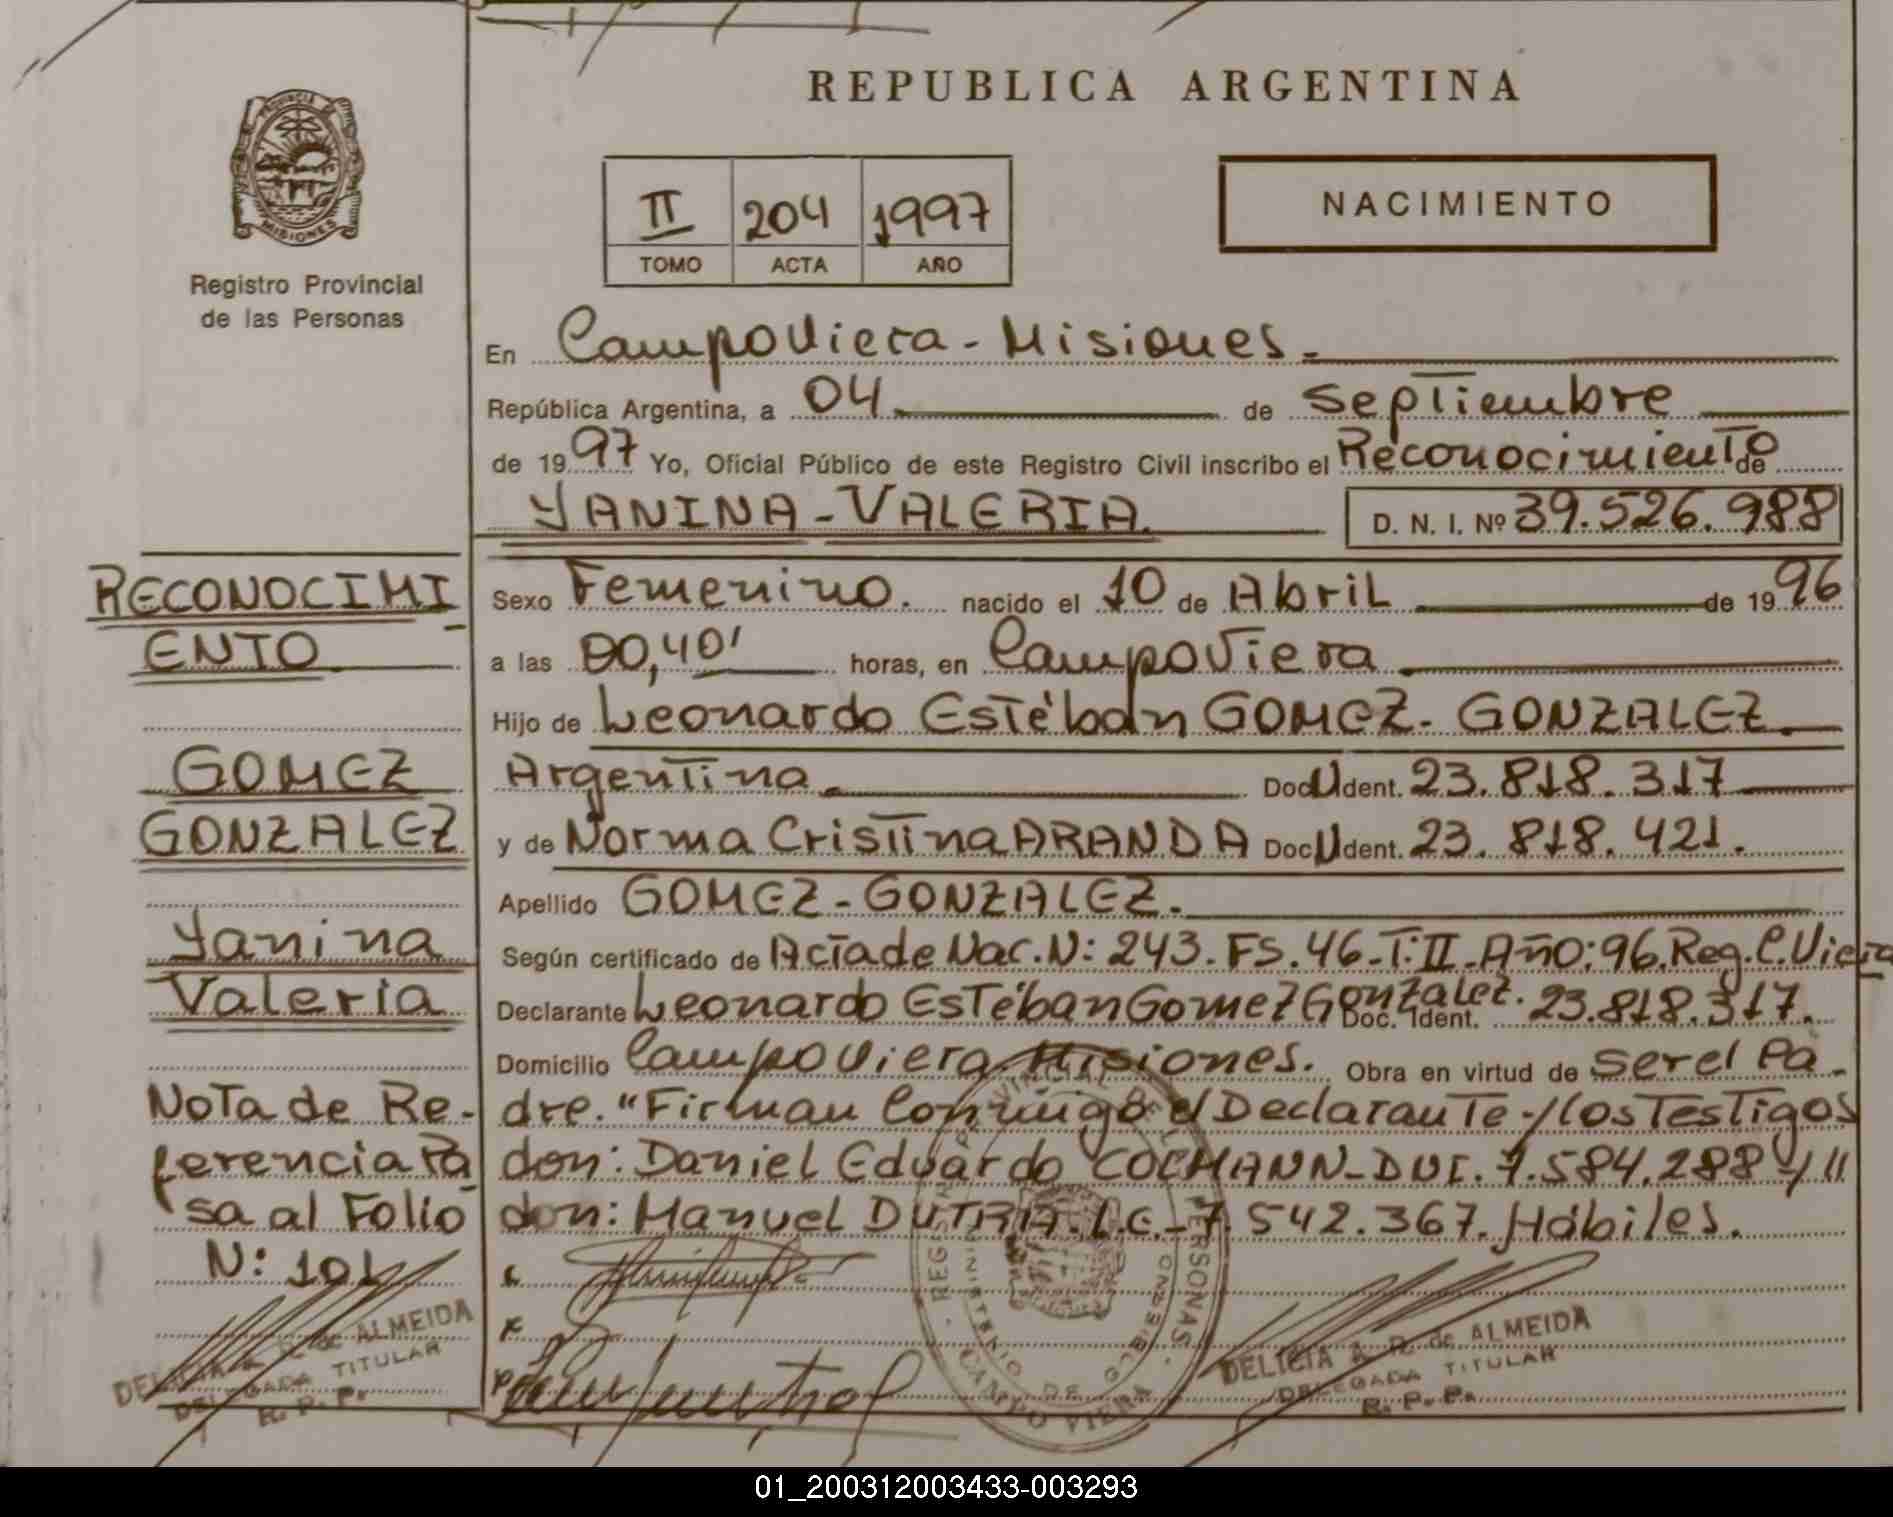 REPUBLICA ARGENTINA
PROVINCIA
MISIONES
Registro Provincial
de las Personas
II 204 1997
TOMO ACTA AÑO
NACIMIENTO
En Campo Viera - Misiones.
República Argentina, a 04 de Septiembre
de 1997 Yo, Oficial Público de este Registro Civil inscribo el Reconocimiento de
YANINA - VALERIA. D. N. I. Nº 39.526.988
Sexo Femenino. nacido el 10 de Abril de 1996
a las 00,40' horas, en Campo Viera
Hijo de Leonardo Estéban GOMEZ - GONZALEZ
Argentina Doc U Ident. 23.818.317
y de Norma Cristina ARANDA Doc U Ident. 23.818.421.
Apellido GOMEZ - GONZALEZ.
Según certificado de Acta de Nac. N: 243. FS. 46. T: II. Año: 96. Reg. C. Viera
Declarante Leonardo Estéban Gomez Gonzalez. Doc. Ident. 23.818.317.
Domicilio Campo Viera Misiones. Obra en virtud de ser el Pa-
dre. "Firman Conmigo el Declarante -/ los Testigos
don: Daniel Eduardo COCHANN - DUI. 7.584.288 -/ "
don: Manuel DUTRA. L.E. - 7.542.367. Hábiles.
RECONOCIMI
ENTO
GOMEZ
GONZALEZ
Yanina
Valeria
Nota de Re-
ferencia Pa
sa al Folio
N: 101
DELICIA A. R. de ALMEIDA
DELEGADA TITULAR
R. P. P.
DELICIA A. R. de ALMEIDA
DELEGADA TITULAR
R. P. P.
MINISTERIO DE GOBIERNO
CAMPO VIERA
PERSONAS
01_200312003433-003293